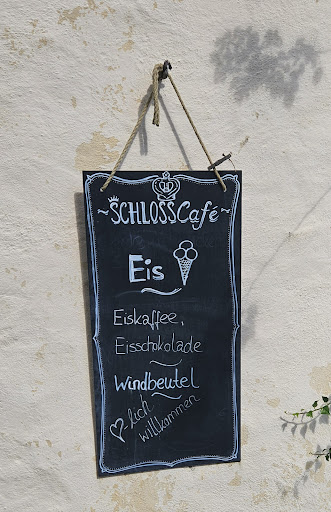 ~SCHLOSSCafé~
Eis
Eiskaffee,
Eisschokolade
Windbeutel
♡lich
willkommen